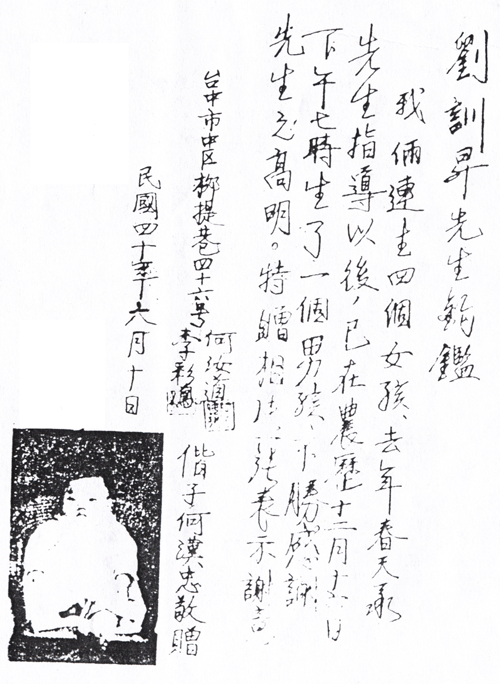 劉訓昇先生鈞鑑
我倆連生四個女孩、去年春天承
先生指導以後，已在農歷十二月十一日
下午七時生了一個男孩、不勝感謝
先生之高明。特贈相片一張表示謝意
台中市中区柳提巷四十六号
何汝道
李彩鳳
偕子何漢忠敬贈
民國四十年六月十日